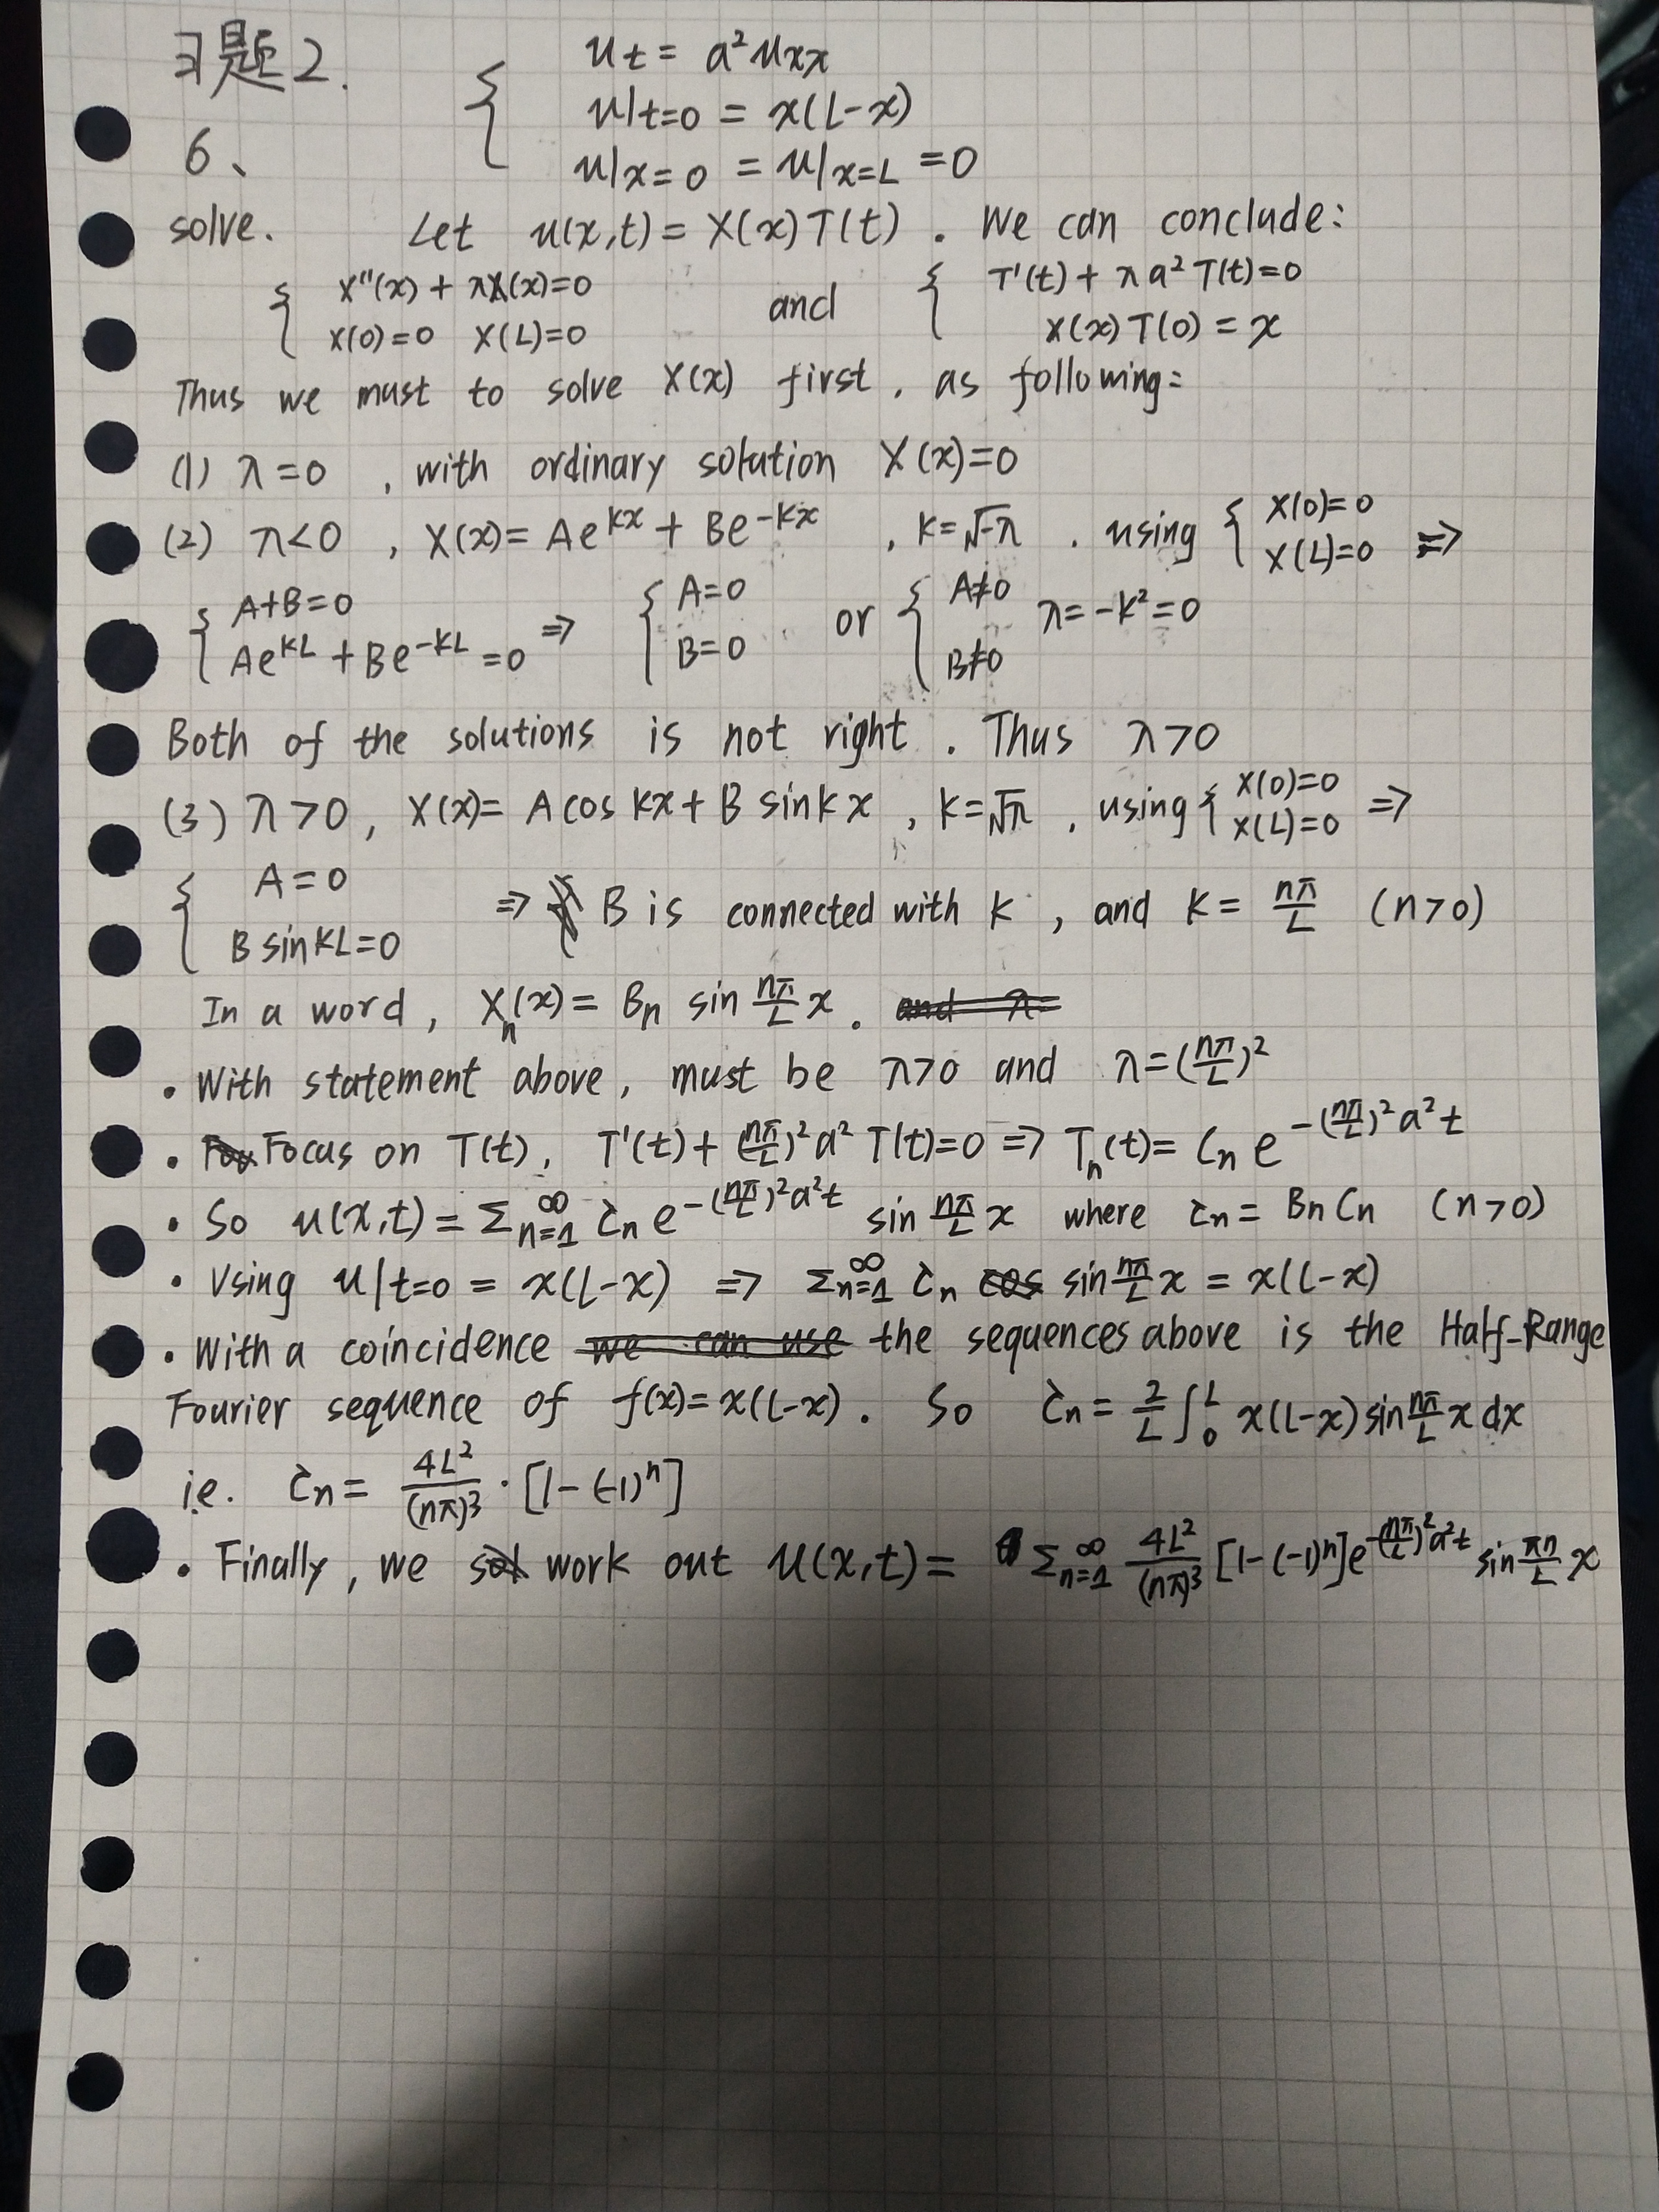 习题2.
6、 { ut = a²uxx
u|t=0 = x(L-x)
u|x=0 = u|x=L = 0
solve. Let u(x,t) = X(x)T(t). We can conclude:
{ X''(x) + λX(x)=0 and { T'(t) + λa²T(t)=0
X(0)=0 X(L)=0 X(x)T(0) = x
Thus we must to solve X(x) first, as following:
(1) λ=0 , with ordinary solution X(x)=0
(2) λ<0 , X(x)= Ae^{kx} + Be^{-kx} , k=√-λ . using { X(0)=0 X(L)=0 ⇒
{ A+B=0 Ae^{kL} + Be^{-kL} =0 ⇒ { A=0 B=0 . or { A≠0 B≠0 λ=-k²=0
Both of the solutions is not right. Thus λ>0
(3) λ>0, X(x)= A cos kx + B sin kx , k=√λ , using { X(0)=0 X(L)=0 ⇒
{ A=0 B sin kL=0 ⇒ B is connected with k , and k= nπ/L (n>0)
In a word, Xn(x)= Bn sin nπ/L x. and λ=
• With statement above, must be λ>0 and λ=(nπ/L)²
• Focus on T(t), T'(t)+(nπ/L)²a²T(t)=0 ⇒ Tn(t)= Cn e^{-(nπ/L)²a²t}
• So u(x,t)= Σ_{n=1}^{∞} c̀n e^{-(nπ/L)²a²t} sin nπ/L x where c̀n = BnCn (n>0)
• Using u|t=0 = x(L-x) ⇒ Σ_{n=1}^{∞} c̀n cos sin nπ/L x = x(L-x)
• With a coincidence we can use the sequences above is the Half-Range
Fourier sequence of f(x)=x(L-x). So c̀n = 2/L ∫_0^L x(L-x) sin nπ/L x dx
i.e. c̀n = 4L²/(nπ)³ · [1-(-1)^n]
• Finally, we sol work out u(x,t)= Σ_{n=1}^{∞} 4L²/(nπ)³ [1-(-1)^n]e^{-(nπ/L)²a²t} sin πn/L x